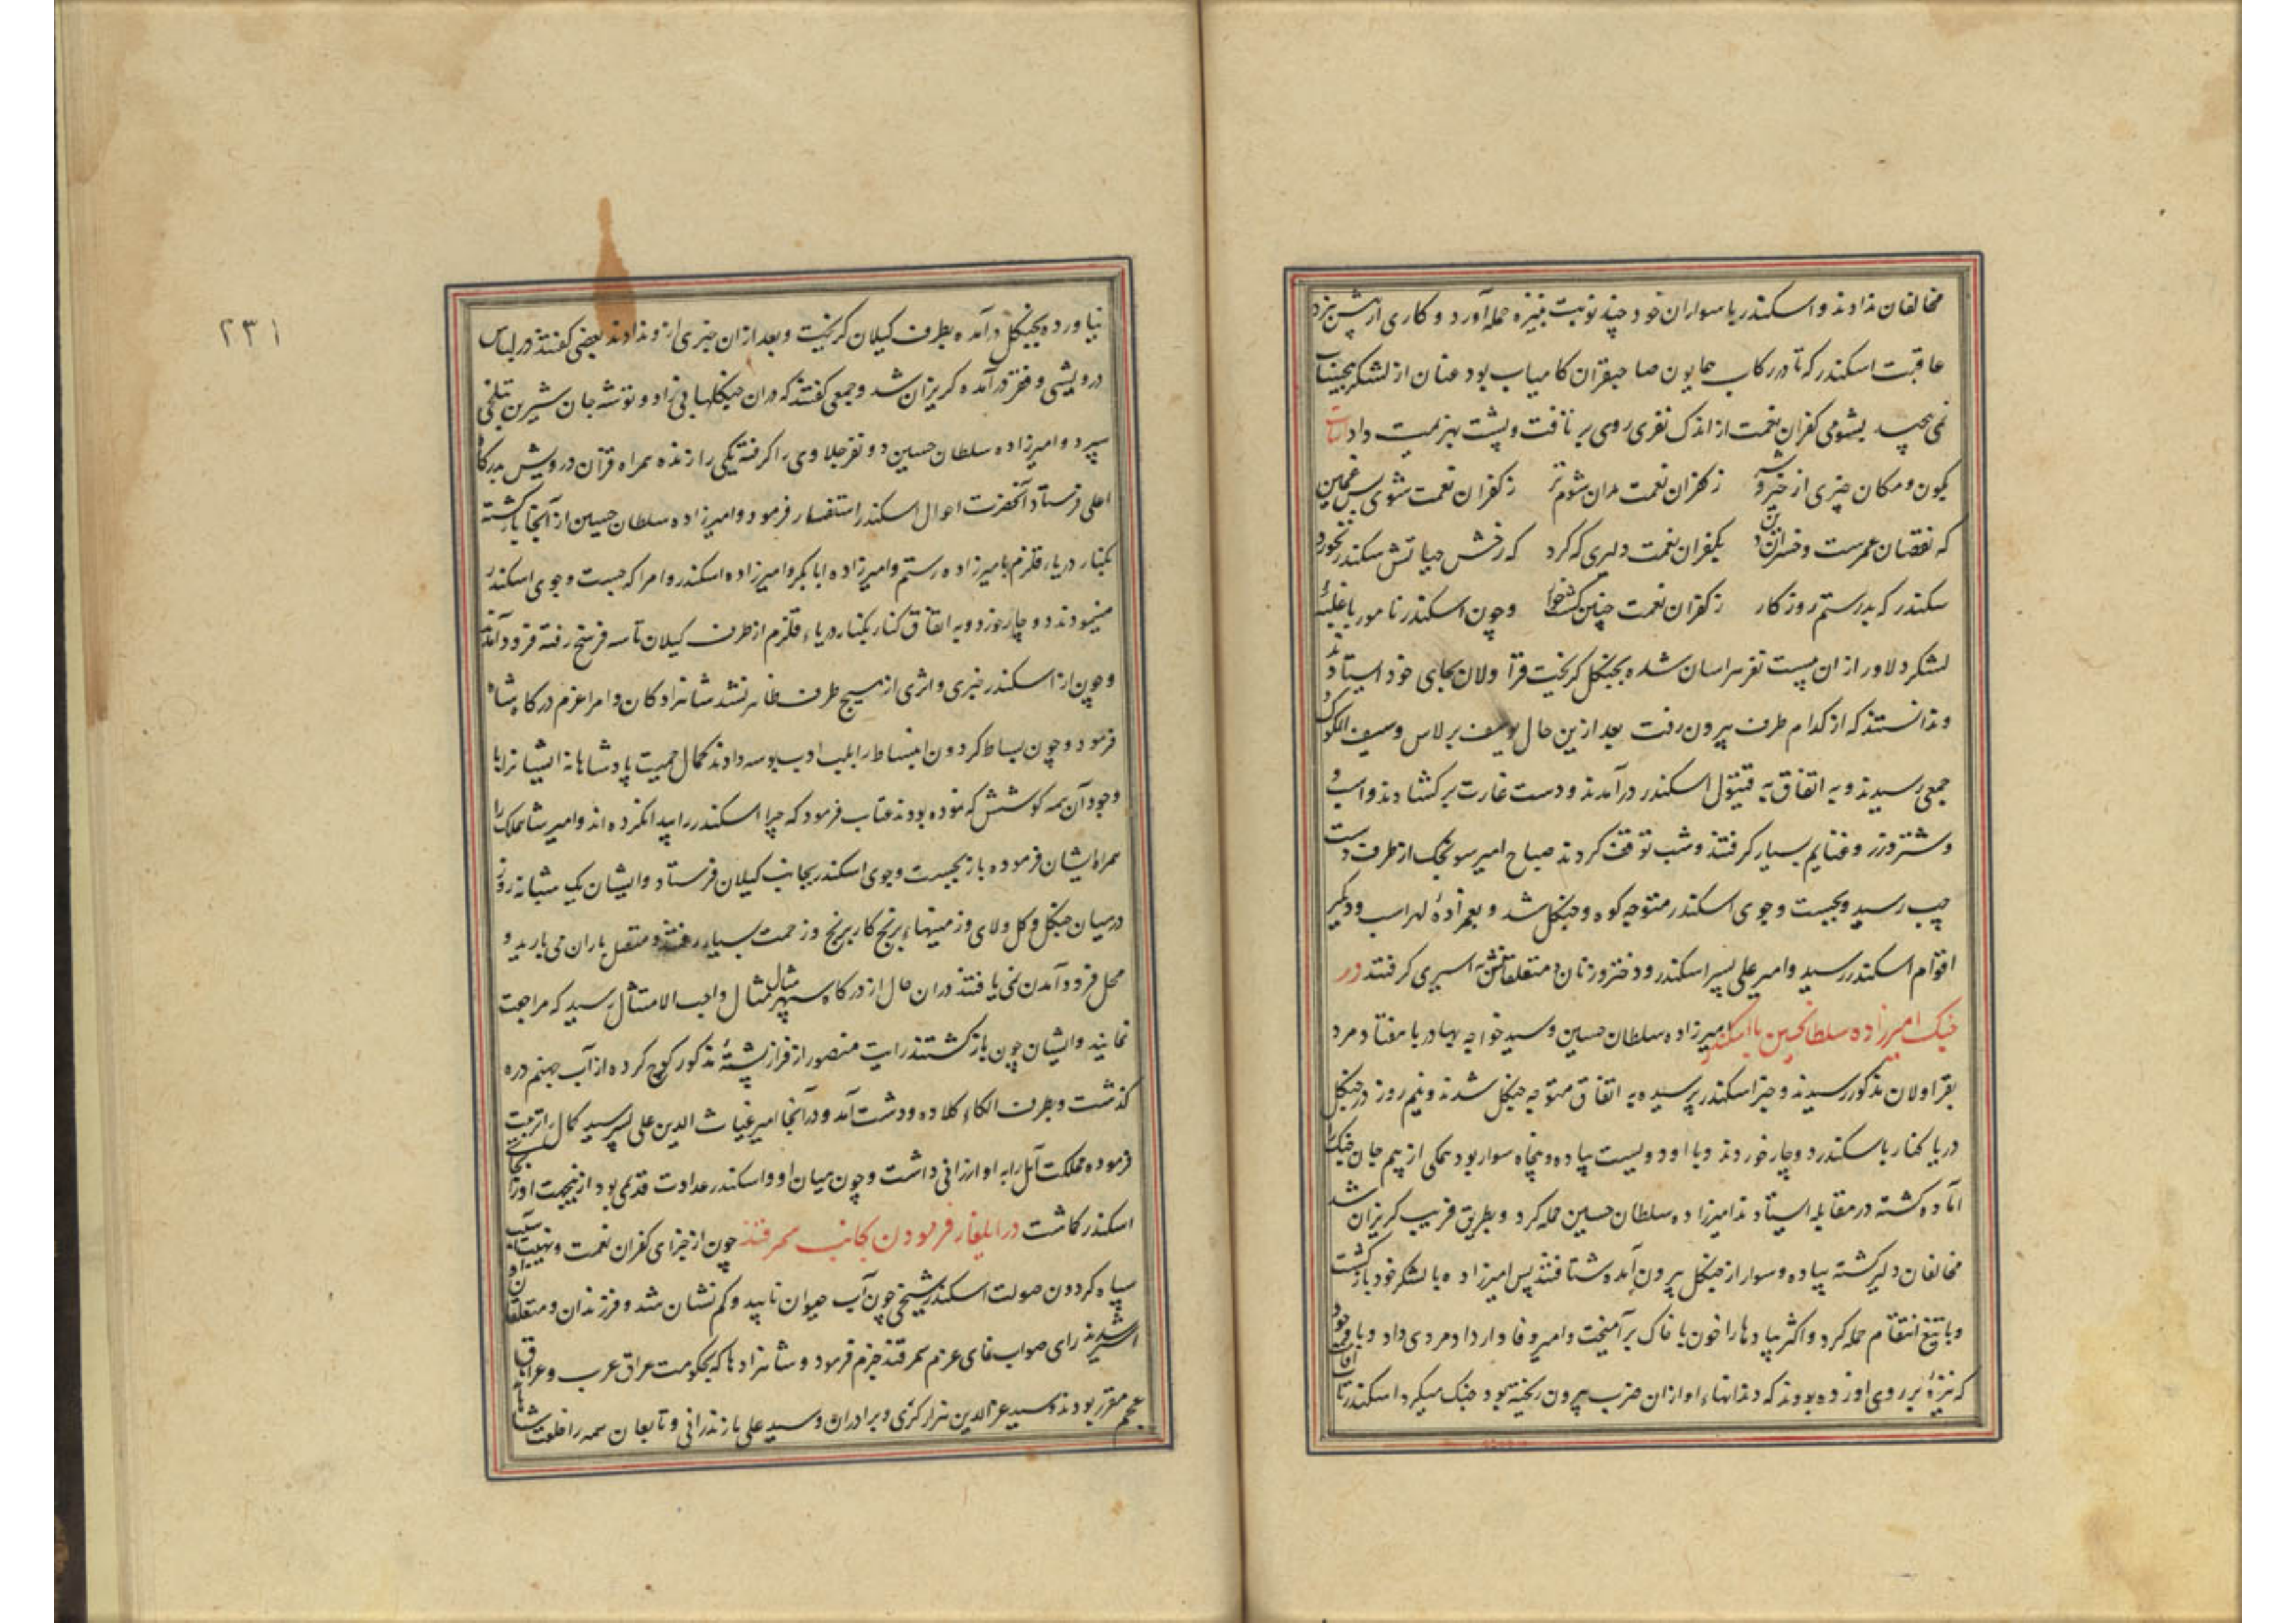 مخالفان ندادند و اسکندر با سواران خود چند نوبت بنیزه حمله آورد و کاری از پیش نبرد
عاقبت اسکندر که تا در رکاب همایون صاحبقران کامیاب بود عنان از لشکر
نمی‌پیچید بشومی کفران نعمت از اندک نفری روی بر تافت و پشت بهزیمت داد ابیات
بکون و مکان چیزی از خیر و شر زکفران نعمت مدان شوم‌تر زکفران نعمت شوی
که نقصان عمرست و خسران دین بکفران نعمت دلیری که کرد که رخش حیاتش سکندر نخورد
سکندر که بد رستم روزکار زکفران نعمت چنین کشت خوار و چون اسکندر نامور با غلبهٔ
لشکر دلاور از ان بیست نفر هراسان شده بجنکل کریخت قراولان بجای خود ایستادند
و ندانستند که از کدام طرف بیرون رفت بعد ازین حال یوسف برلاس و سیف الملوک و
جمعی رسیدند و به اتفاق به قیتول اسکندر درآمدند و دست غارت برکشادند و اسب و
و شتر و زر و غنایم بسیار کرفتند و شب توقف کردند صباح امیر سونجک از طرف دست
چپ رسید و بجست و جوی اسکندر متوجه کوه و جنکل شد و بعمزادهٔ لهراسب و دیکر
اقوام اسکندر رسید و امیر علی پسر اسکندر و دختر و زنان و متعلقانش به اسیری کرفتند در
جنک امیرزاده سلطانحسین با اسکندر امیرزاده سلطان حسین و سید خواجه بهادر با هفتاد مرد
بقراولان مذکور رسیدند و خبر اسکندر پرسیده به اتفاق متوجه جنکل شدند و نیم روز در جنکل
دریا کنار با سکندر دوچار خوردند و با او دویست پیاده و پنجاه سوار بود همکی از بیم جان جنک را
آماده کشته در مقابله ایستادند امیرزاده سلطان حسین حمله کرد و بطریق فریب کریزان شد
مخالفان دلیر کشته پیاده و سوار از جنکل بیرون آمده شتافتند پس امیرزاده با لشکر خود بازکشت
و با تیغ انتقام حمله کرد و اکثر پیادها را خون با خاک برآمیخت و امیر وفادار داد مردی داد و با وجود
که نیزهٔ بر روی او زده بودند که دندانهاء او از ان ضرب بیرون ریخته بود جنک میکرد اسکندر تاب
نیاورده بجنکل درآمده بطرف کیلان کریخت و بعد از ان خبری ازو ندادند بعضی کفتند در لباس
درویشی و فقر درآمده کریزان شد و جمعی کفتند که دران جنکلها بی زاد و توشه جان شیرین بتلخی
سپرد و امیرزاده سلطان حسین دو نفر جلاوی را کرفته یکی را زنده همراه قرآن درویش بدرکاه
اعلی فرستاد آنحضرت احوال اسکندر استفسار فرمود و امیرزاده سلطان حسین از آنجا بازکشته
بکنار دریاء قلزم بامیرزاده رستم و امیرزاده ابابکر و امیرزاده اسکندر و امرا که جست و جوی اسکندر
مینمودند دوچار خورد و به اتفاق کنار بکنار دریاء قلزم از طرف کیلان تا سه فرسخ رفته فرود آمدند
و چون از اسکندر خبری و اثری از هیچ طرف ظاهر نشد شاهزادکان و امرا عزم درکاه شاه
فرمود و چون بساط کردون انبساط را بلب ادب بوسه دادند کمال حمیت پادشاهانه ایشانرا با
وجود آن همه کوشش که نموده بودند عتاب فرمود که چرا اسکندر را پیدا نکرده‌اند و امیر شاهملک را
همراه ایشان فرموده باز بجست و جوی اسکندر بجانب کیلان فرستاد و ایشان یک شبانه روز
در میان جنکل و کل و لای و زمینهاء برنج کار برنج و زحمت بسیار رفتند و متصل باران می بارید و
محل فرود آمدن نمی یافتند دران حال از درکاه سپهر مثال مثال واجب الامتثال رسید که مراجعت
نمایند و ایشان چون بازکشتند رایت منصور از فراز پشتهٔ مذکور کوچ کرده از آب جهنم دره
کذشت و بطرف الکاء کلاده و دشت آمد و در آنجا امیر غیاث الدین علی پسر سید کمال را تربیت
فرموده مملکت آمل را به او ارزانی داشت و چون میان او و اسکندر عداوت قدیمی بود ازینجهت او را بجای
اسکندر کاشت در ایلغار فرمودن بجانب سمرقند چون از جزای کفران نعمت و نهیب آسیب
سپاه کردون صولت اسکندر شیخی چون آب حیوان ناپید و کم نشان شد و فرزندان و متعلقان او
اسیر شدند رای صواب نمای عزم سمرقند جزم فرمود و شاهزادها که بحکومت عراق عرب و عراق
عجم مقرر بودند و سید عزالدین هزارکزی و برادران و سید علی مازندرانی و تابعان همه را خلعت شاهانه
٢٣١